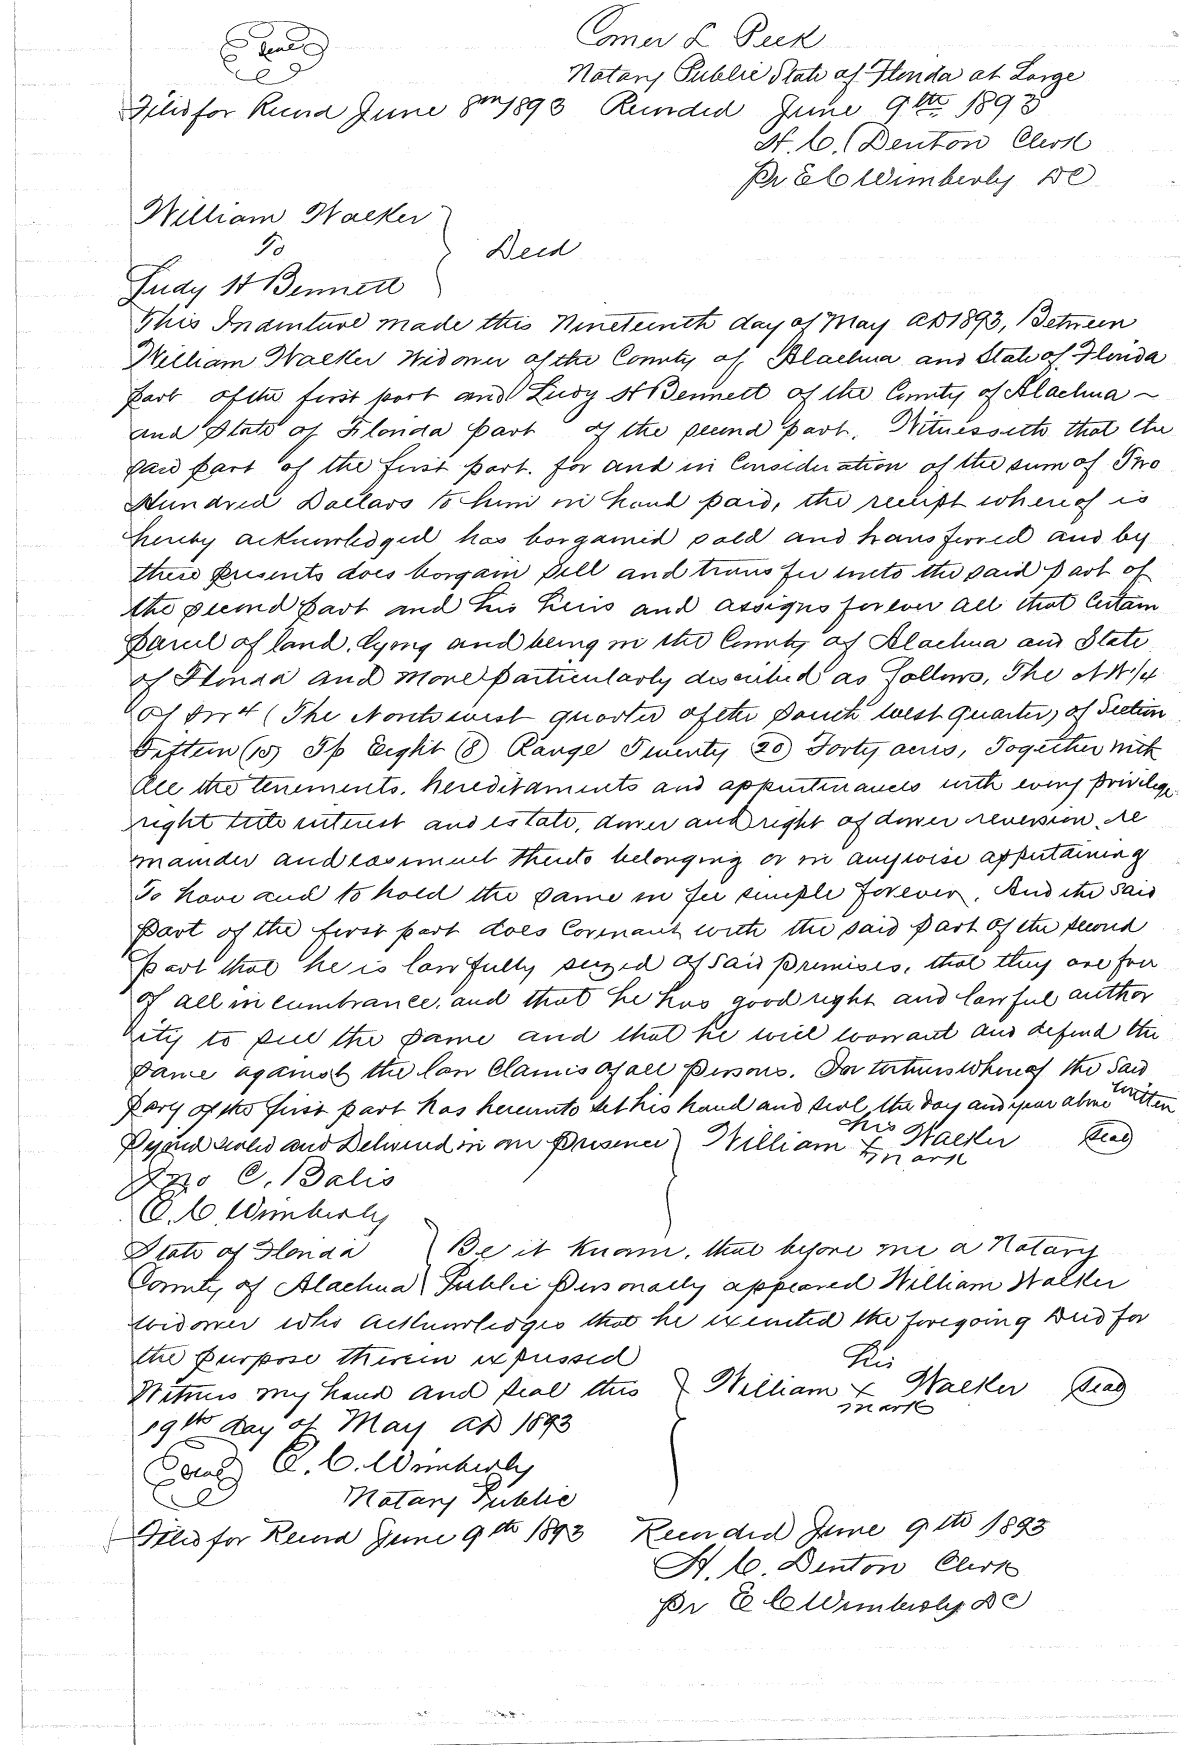 Seal
Comer L Peek
Notary Public State of Florida at Large
Filed for Record June 8th 1893 Recorded June 9th 1893
H. C. Denton Clerk
Pr E C Wimberly DC
William Walker
To
Deed
Judy H Bennett
This Indenture made this Nineteenth day of May AD 1893, Between
William Walker Widower of the County of Alachua and State of Florida
part of the first part and Judy H Bennett of the County of Alachua ~
and State of Florida part of the second part. Witnesseth that the
said part of the first part. for and in Consideration of the sum of Two
Hundred Dollars to him in hand paid, the receipt whereof is
hereby acknowledged has bargained sold and transferred and by
these presents does bargain sell and transfer unto the said part of
the second part and his heirs and assigns forever all that Certain
parcel of land, lying and being in the County of Alachua and State
of Florida and more particularly described as follows, The NW 1/4
of SW 4 (The North west quarter of the South west Quarter) of Section
Fifteen (15) Tp Eight (8) Range Twenty (20) Forty acres, Together with
all the tenements, hereditaments and appurtenances with every privilege
right title interest and estate, dower and right of dower reversion, re
mainder and easement thereto belonging or in anywise appertaining
To have and to hold the same in fee simple forever, And the said
part of the first part does Covenant with the said part of the second
part that he is lawfully seized of said premises, that they are free
of all incumbrance, and that he has good right and lawful author
ity to sell the same and that he will warrant and defend the
same against the law Claims of all persons. In whereof the said
party of the first part has hereunto set his hand and seal, the day and year above written
Signed sealed and Delivered in our presence
William his x mark Walker Seal
Jno C. Balis
E. C. Wimberly
State of Florida Be it Known, that before me a Notary
County of Alachua Public personally appeared William Walker
widower who acknowledges that he executed the foregoing Deed for
the purpose therein expressed
Witness my hand and seal this William His x mark Walker Seal
19th day of May AD 1893
Seal E. C. Wimberly
Notary Public
Filed for Record June 9th 1893 Recorded June 9th 1893
H. C. Denton Clerk
Pr E C Wimberly DC